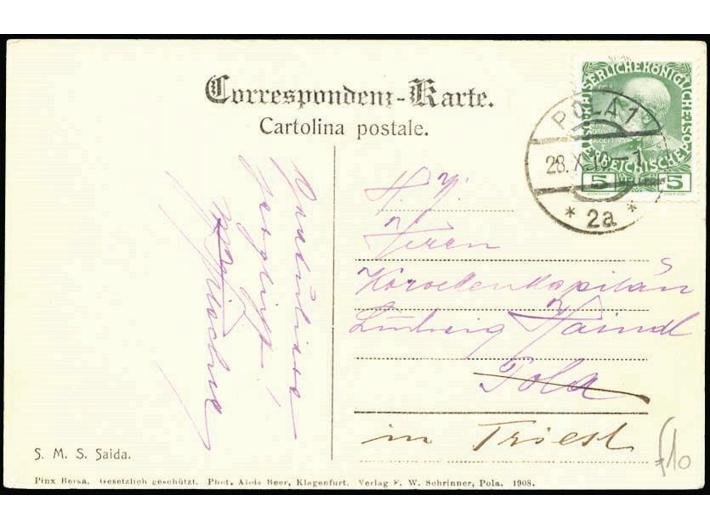 Correspondenz-Karte.
Cartolina postale.
KAISERLICHE KÖNIGLICHE ÖSTERREICHISCHE
5 5
POLA 1
28. X
* 2a *
Herrn
Korvettenkapitän
Ludwig Haindl
Pola
in Triest
f10
S. M. S. Saida.
Pinx Bersa. Gesetzlich geschützt. Phot. Alois Beer, Klagenfurt. Verlag F. W. Schrinner, Pola. 1908.